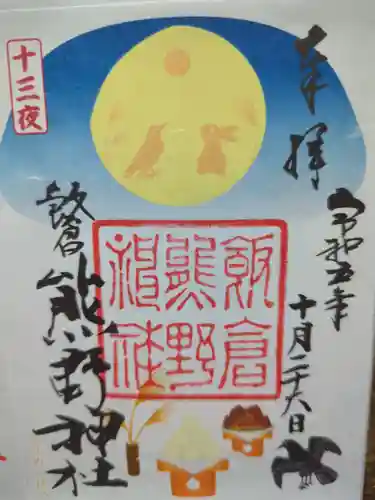 奉拝
令和五年
十月二十六日
飯倉
熊野
神社
十三夜
飯倉
熊野神社